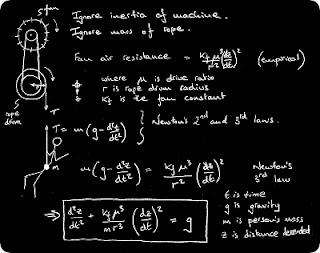 fan
Ignore inertia of machine.
Ignore mass of rope.
Fan air resistance = K_f μ³/r² (dz/dt)² (empirical)
where μ is drive ratio
r is rope drum radius
K_f is the fan constant
rope drum
T
T
T = m(g - d²z/dt²) } Newton's 2nd and 3rd laws.
m
m(g - d²z/dt²) = K_f μ³/r² (dz/dt)² Newton's 3rd law
⇒ d²z/dt² + K_f μ³/mr³ (dz/dt)² = g
t is time
g is gravity
m is person's mass
z is distance descended